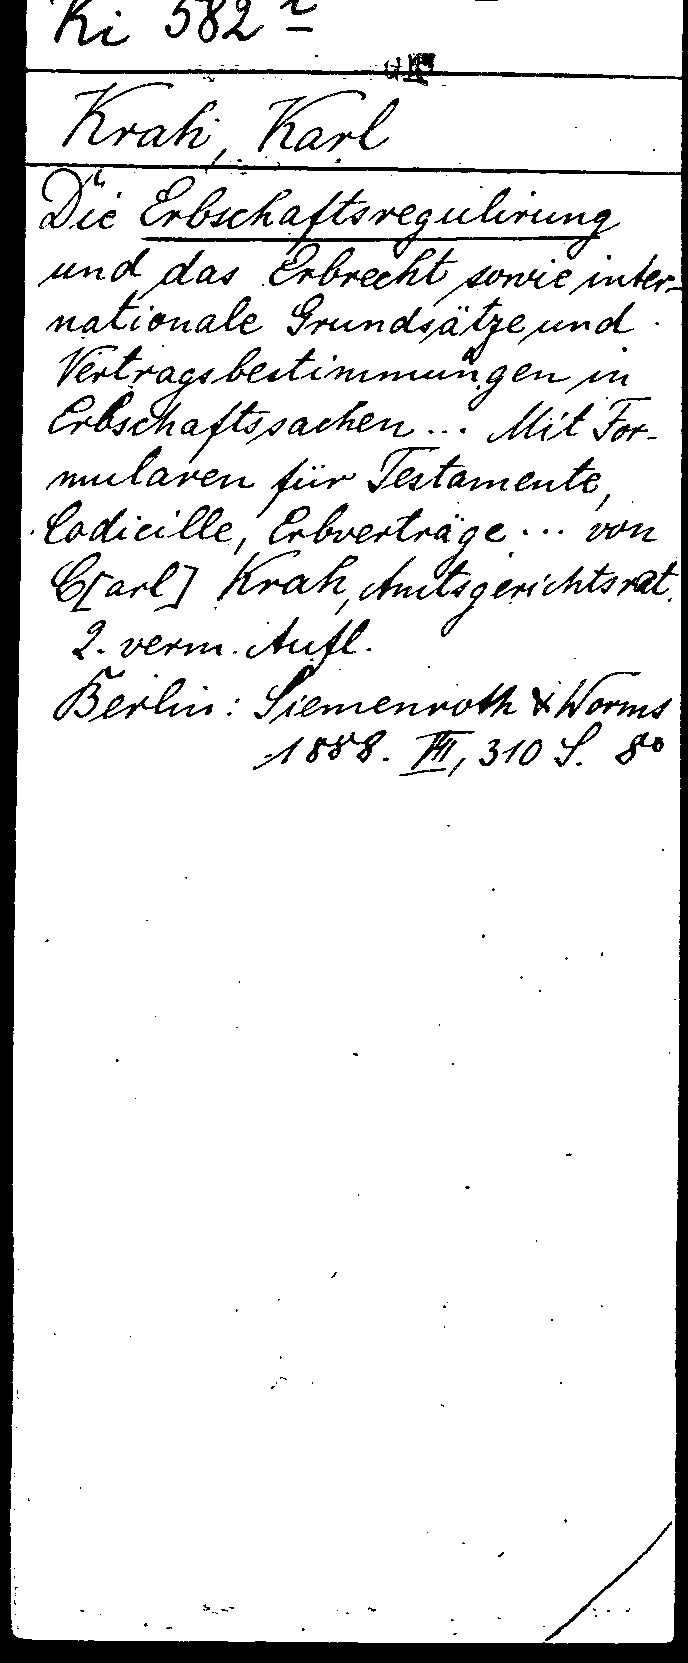 Ki 582
Krah, Karl
Die Erbschaftsregulirung
und das Erbrecht sowie inter-
nationale Grundsätze und
Vertragsbestimmungen in
Erbschaftssachen... Mit For-
mularen für Testamente,
Codicille, Erbverträge... von
C[arl] Krah, Amtsgerichtsrat.
2. verm. Aufl.
Berlin: Siemenroth & Worms
1888. VII, 310 S. 8°